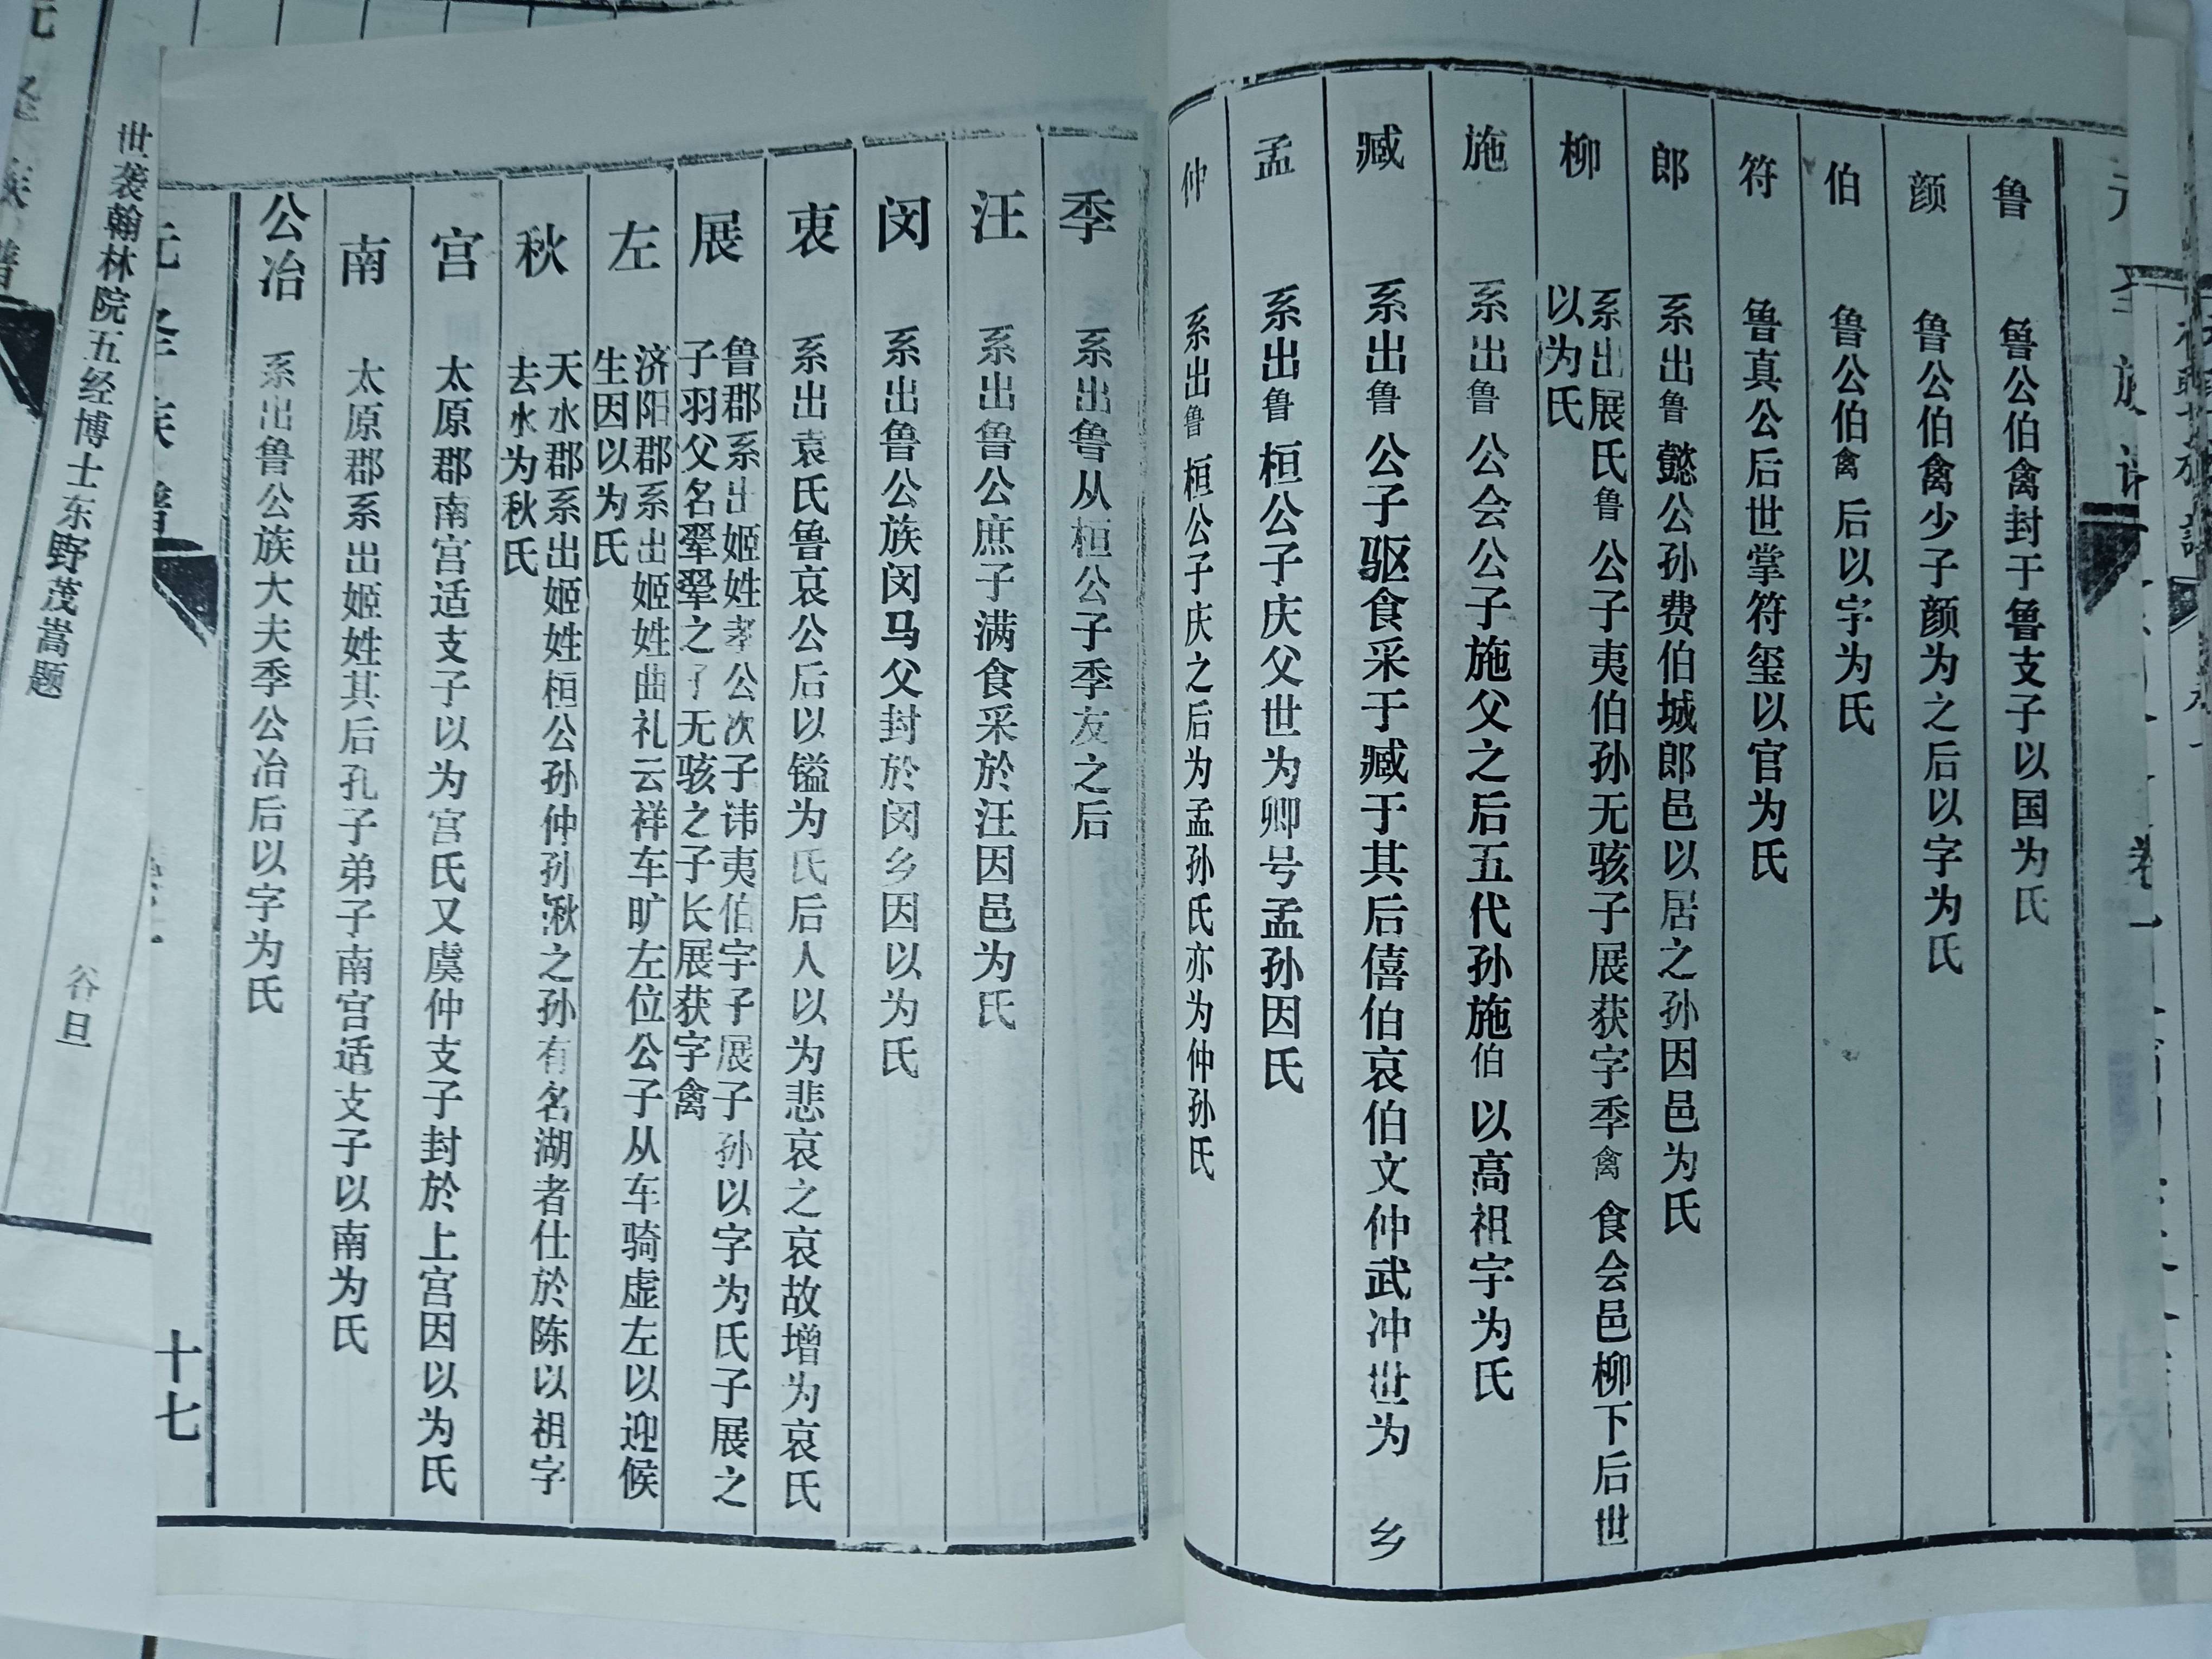 鲁 鲁公伯禽封于鲁支子以国为氏
颜 鲁公伯禽少子颜为之后以字为氏
伯 鲁公伯禽后以字为氏
符 鲁真公后世掌符玺以官为氏
郎 系出鲁懿公孙费伯城郎邑以居之孙因邑为氏
柳 系出展氏鲁公子夷伯孙无骇子展获字季禽食会邑柳下后世
以为氏
施 系出鲁公会公子施父之后五代孙施伯以高祖字为氏
臧 系出鲁公子驱食采于臧于其后僖伯哀伯文仲武冲世为乡
孟 系出鲁桓公子庆父世为卿号孟孙因氏
仲 系出鲁桓公子庆之后为孟孙氏亦为仲孙氏
季 系出鲁从桓公子季友之后
汪 系出鲁公庶子满食采於汪因邑为氏
闵 系出鲁公族闵马父封於闵乡因以为氏
衷 系出袁氏鲁哀公后以镒为氏后人以为悲哀之哀故增为哀氏
展 鲁郡系出姬姓孝公次子讳夷伯字子展子孙以字为氏子展之
子羽父名翚翚之子无骇之子长展获字禽
左 济阳郡系出姬姓曲礼云祥车旷左位公子从车骑虚左以迎候
生因以为氏
秋 天水郡系出姬姓桓公孙仲孙湫之孙有名湖者仕於陈以祖字
去水为秋氏
宫 太原郡南宫适支子以为宫氏又虞仲支子封於上宫因以为氏
南 太原郡系出姬姓其后孔子弟子南宫适支子以南为氏
公冶 系出鲁公族大夫季公冶后以字为氏
十七
世袭翰林院五经博士东野茂嵩题
谷旦